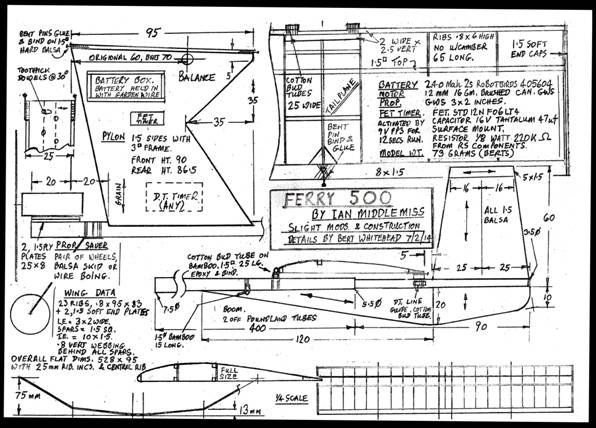 BENT PINS GLUE
& BIND ON 1.5
HARD BALSA
95
ORIGINAL 60, BERT 70
BALANCE
5
BATTERY BOX.
BATTERY HELD IN
WITH GARDEN WIRE
TOOTHPICK
DOWELS @30°
FET
TIMER
35
35
PYLON 1.5 SIDES WITH
3° FRAME.
FRONT HT. 90
REAR HT. 86.5
25
20
20
GRAIN
D.T. TIMER
(ANY)
COTTON
BUD
TUBES
25 WIDE
2 WIDE x
2.5 VERT
1.5 TOP
TAILPLANE
BENT
PIN
BIND &
GLUE
8 x 1.5
RIBS .8 x 6 HIGH
NO U/CAMBER
65 LONG.
1.5 SOFT
END CAPS
BATTERY 240 Mah 2s ROBOTBIRDS 405604
MOTOR 12 MM 16 GM. BRUSHED CAN. GWS
PROP. GWS 3x2 INCHES.
FET TIMER. FET. STD 12N F06LT4
ACTIVATED BY CAPACITOR 16V TANTALUM 47uf
9V PP3 FOR SURFACE MOUNT.
12 SECS RUN. RESISTOR 1/8 WATT 220K Ω
FROM RS COMPONENTS.
MODEL WT. 73 GRAMS (BERTS)
FERRY 500
BY IAN MIDDLEMISS
SLIGHT MODS. & CONSTRUCTION
DETAILS BY BERT WHITEHEAD 7/2/14
5 x 1.5
16
16
ALL 1.5
BALSA
60
3.5Ø
25
25
10
2, 1.5 PLY
PLATES
25 x 8
PROP SAVER
PAIR OF WHEELS,
BALSA SKID OR
WIRE BOING.
COTTON BUD TUBE ON
BAMBOO. 1.5Ø 25 LG.
EPOXY & BIND.
5
WING DATA
23 RIBS, .8 x 95 x 83
+ 2, 1.5 SOFT END PLATES
LE = 3 x 2 WIDE.
SPARS = 1.5 SQ.
TE = 10 x 1.5.
.8 VERT WEBBING
BEHIND ALL SPARS.
OVERALL FLAT DIMS. 528 x 95
WITH 25MM RIB. INCS. & CENTRAL RIB
7.5Ø
1.5Ø BAMBOO
15 LONG.
BOOM.
2 OFF POUNDLAND TUBES
5.5Ø
D.T. LINE
GUIDE. COTTON
BUD TUBE.
20
400
90
120
FULL
SIZE
75MM
13MM
1/4 SCALE